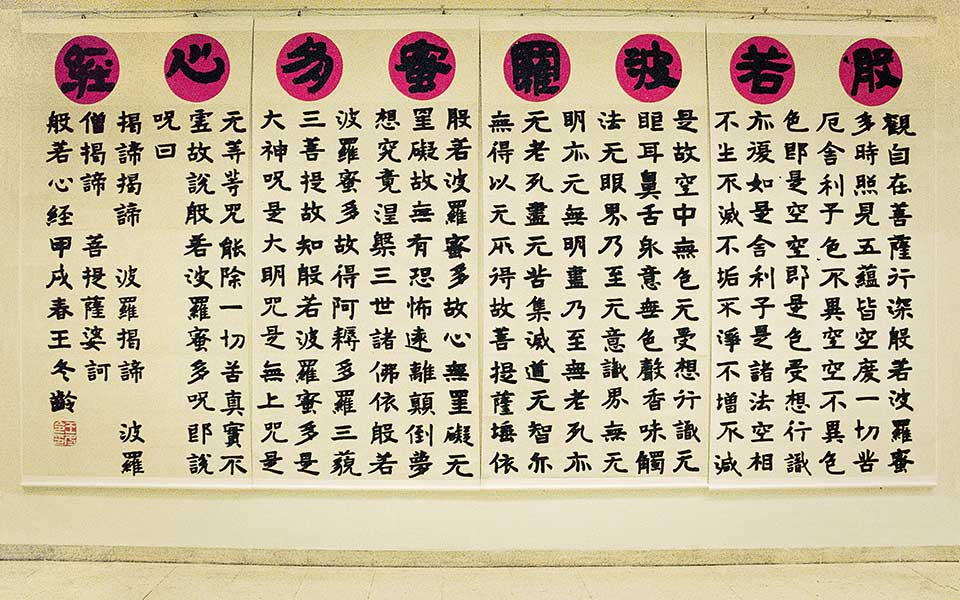 般若波羅蜜多心經
觀自在菩薩行深般若波羅蜜
多時照見五蘊皆空度一切苦
厄舍利子色不異空空不異色
色即是空空即是色受想行識
亦復如是舍利子是諸法空相
不生不滅不垢不淨不增不減
是故空中無色无受想行識无
眼耳鼻舌身意無色聲香味觸
法无眼界乃至无意識界無无
明亦无無明盡乃至無老死亦
无老死盡无苦集滅道无智亦
無得以无所得故菩提薩埵依
般若波羅蜜多故心無罣礙无
罣礙故無有恐怖遠離顛倒夢
想究竟涅槃三世諸佛依般若
波羅蜜多故得阿耨多羅三藐
三菩提故知般若波羅蜜多是
大神咒是大明咒是無上咒是
无等等咒能除一切苦真實不
虛故說般若波羅蜜多呪即說
呪曰
揭諦揭諦 波羅揭諦 波羅
僧揭諦 菩提薩婆訶
般若心経甲戌春王冬齡